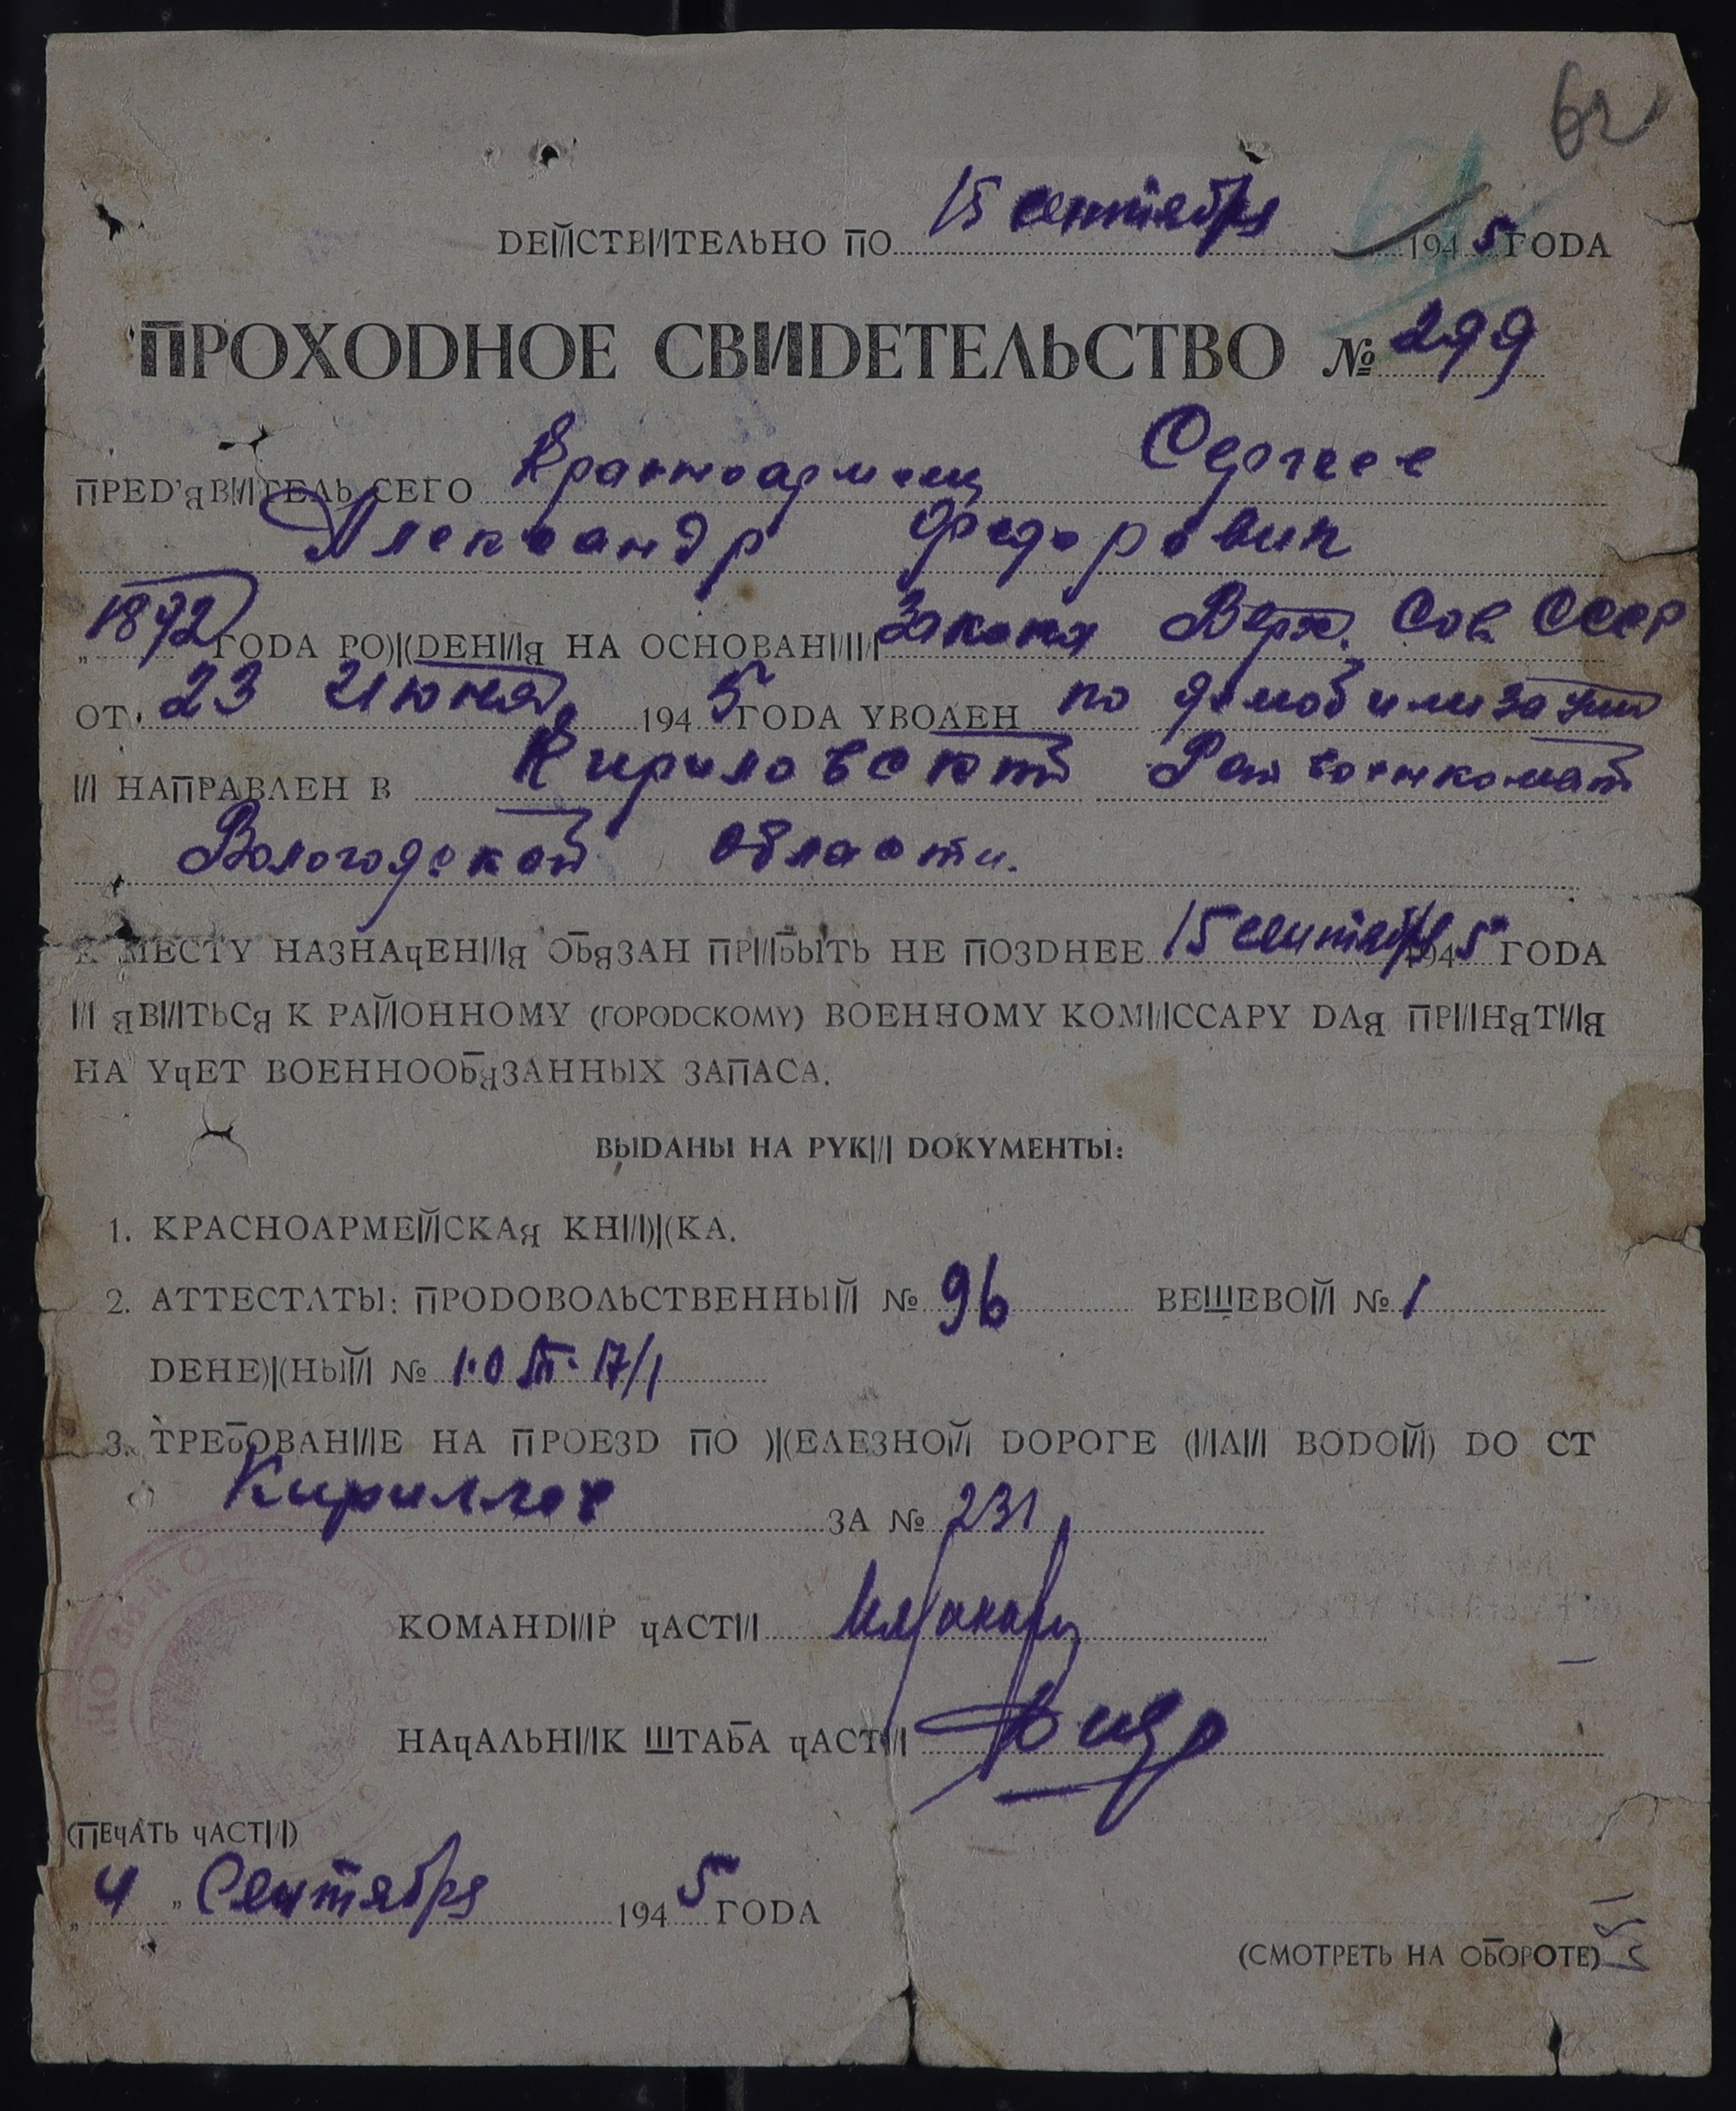 62
ДЕЙСТВИТЕЛЬНО ПО 15 сентября 1945 ГОДА
ПРОХОДНОЕ СВИДЕТЕЛЬСТВО № 299
ПРЕД'ЯВИТЕЛЬ СЕГО Красноармеец Сергеев
Александр Федорович
„1892 ГОДА РОЖДЕНИЯ НА ОСНОВАНИИ Закона Верх. Сов. СССР
ОТ 23 Июня 1945 ГОДА УВОЛЕН по демобилизации
И НАПРАВЛЕН В Кириловский Райвоенкомат
Вологодской области.
К МЕСТУ НАЗНАЧЕНИЯ ОБЯЗАН ПРИБЫТЬ НЕ ПОЗДНЕЕ 15 сентября 1945 ГОДА
И ЯВИТЬСЯ К РАЙОННОМУ (ГОРОДСКОМУ) ВОЕННОМУ КОМИССАРУ ДЛЯ ПРИНЯТИЯ
НА УЧЕТ ВОЕННООБЯЗАННЫХ ЗАПАСА.
ВЫДАНЫ НА РУКИ ДОКУМЕНТЫ:
1. КРАСНОАРМЕЙСКАЯ КНИЖКА.
2. АТТЕСТАТЫ: ПРОДОВОЛЬСТВЕННЫЙ № 96 ВЕЩЕВОЙ № 1
ДЕНЕЖНЫЙ №
3. ТРЕБОВАНИЕ НА ПРОЕЗД ПО ЖЕЛЕЗНОЙ ДОРОГЕ (ИЛИ ВОДОЙ) ДО СТ
Кириллов ЗА № 231
КОМАНДИР ЧАСТИ
НАЧАЛЬНИК ШТАБА ЧАСТИ
(ПЕЧАТЬ ЧАСТИ)
„4„ Сентября 1945 ГОДА
(СМОТРЕТЬ НА ОБОРОТЕ)